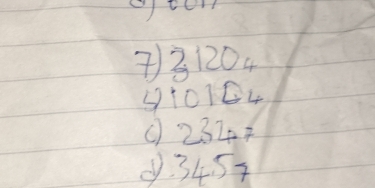 7) 3120₄
b) 1010₄
c) 234₇
d) 345₇